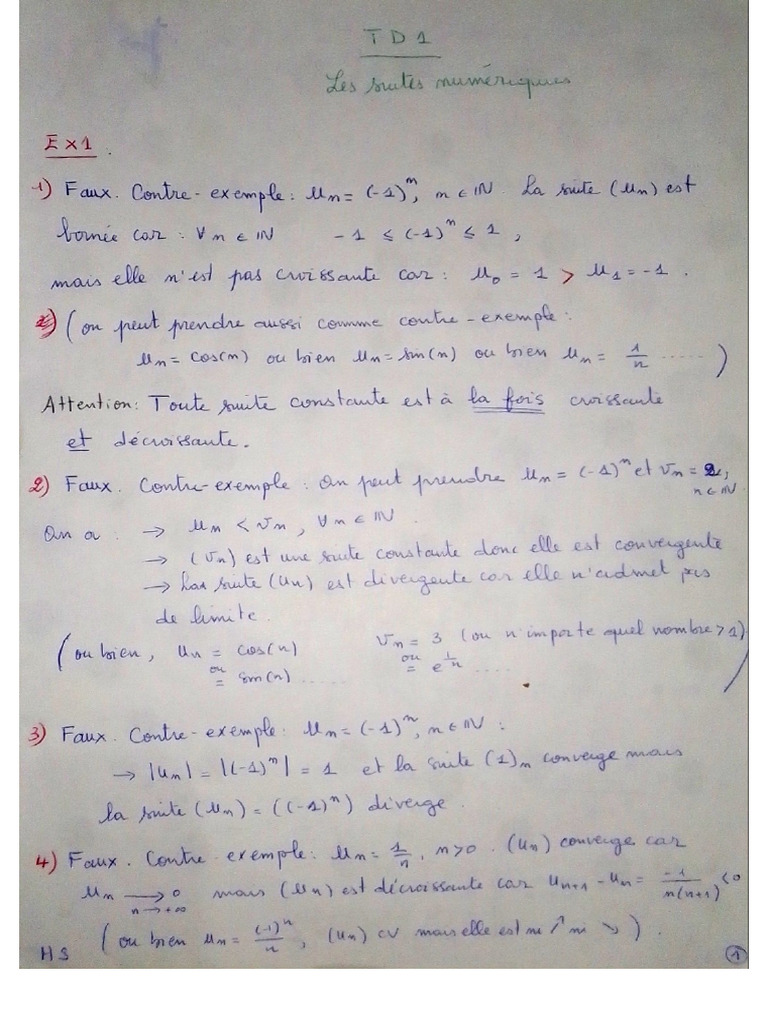 TD1
Les suites numériques
Ex1.
1) Faux. Contre-exemple: un = (-1)^n, n ∈ IN. La suite (un) est
bornée car : ∀ n ∈ IN -1 ≤ (-1)^n ≤ 1,
mais elle n'est pas croissante car : u0 = 1 > u1 = -1.
(on peut prendre aussi comme contre-exemple:
un = cos(n) ou bien un = sin(n) ou bien un = 1/n .....)
Attention: Toute suite constante est à la fois croissante
et décroissante.
2) Faux. Contre-exemple : On peut prendre un = (-1)^n et vn = 2,
n ∈ IN.
On a : → un < vn, ∀ n ∈ IN.
→ (vn) est une suite constante donc elle est convergente
→ La suite (un) est divergente car elle n'admet pas
de limite.
(ou bien, un = cos(n) vn = 3 (ou n'importe quel nombre > 1)
ou = sin(n) ...... ou = e^(1/n) ..... )
3) Faux. Contre-exemple: un = (-1)^n, n ∈ IN :
→ |un| = |(-1)^n| = 1 et la suite (1)n converge mais
la suite (un) = ((-1)^n) diverge.
4) Faux. Contre-exemple: un = 1/n, n>0. (un) converge car
un → 0 n→+∞ mais (un) est décroissante car un+1 - un = -1/n(n+1) < 0
(ou bien un = (-1)^n/n, (un) CV mais elle est ni ↗ ni ↘).
HS
1